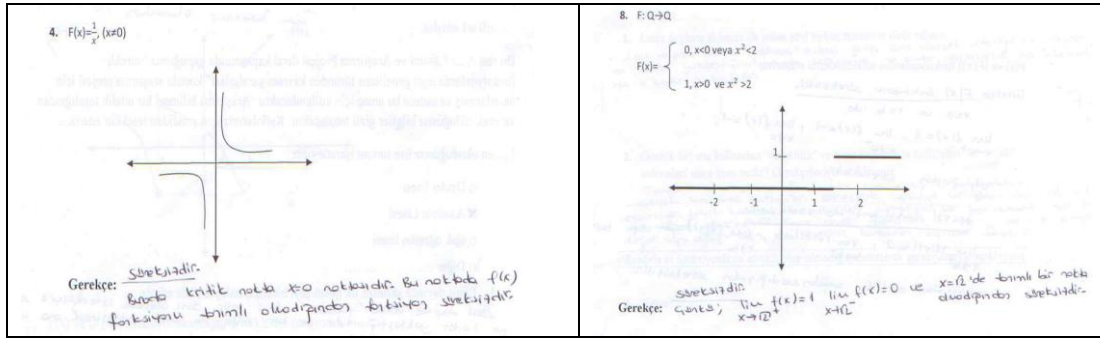 4. F(x)=1/x, (x≠0)
Süreksizdir.
Gerekçe: Burada kritik nokta x=0 noktasıdır. Bu noktada f(x)
fonksiyonu tanımlı olmadığından fonksiyon süreksizdir.
8. F: Q→Q
0, x<0 veya x²<2
F(x)=
1, x>0 ve x²>2
1
-2 -1 1 2
süreksizdir.
Gerekçe: Çünkü; lim f(x)=1 lim f(x)=0 ve x=√2 'de tanımlı bir nokta
x→√2⁺ x→√2⁻ olmadığından süreksizdir.